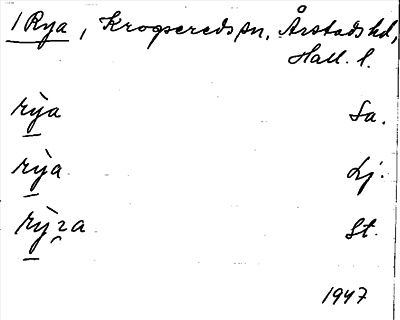 1 Rya, Krogsereds sn, Årstads hd,
Hall. l.
rỳa Sa.
rỳa Lj.
rỳɿa St.
1947